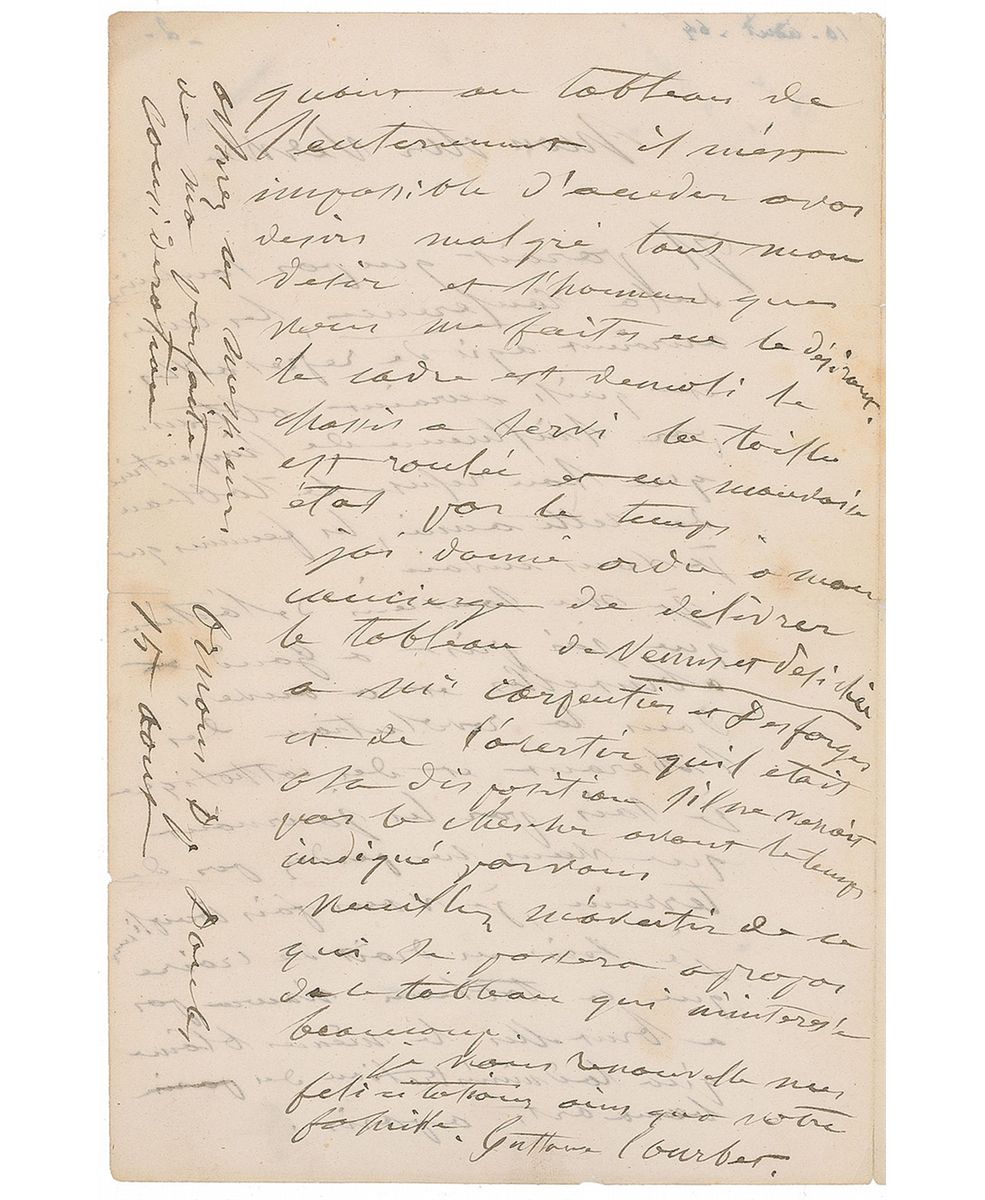 quant au tableau de
l'enterrement il m'est
impossible d'acceder a vos
desirs malgré tout mon
desir et l'honneur que
vous me faites en le désirant.
le cadre est demoli le
chassis a servi la toille
est roulée et en mauvais
état par le temps.
j'ai donné ordre à mon
concierge de délivrer
le tableau de Venus et Psichée
a Mr carpentier et Desforges
et de l'avertir qu'il etait
a sa disposition s'il ne venait
pas le chercher avant le temps
indiqué par vous
veuillez m'avertir de ce
qui se passera apropos
de ce tableau qui m'interesse
beaucoup.
je vous renouvelle mes
felicitations ainsi qua votre
famille. Gustave Courbet.
Ornans Dt Doubs
15 aout
messieurs
de ma parfaite
consideration